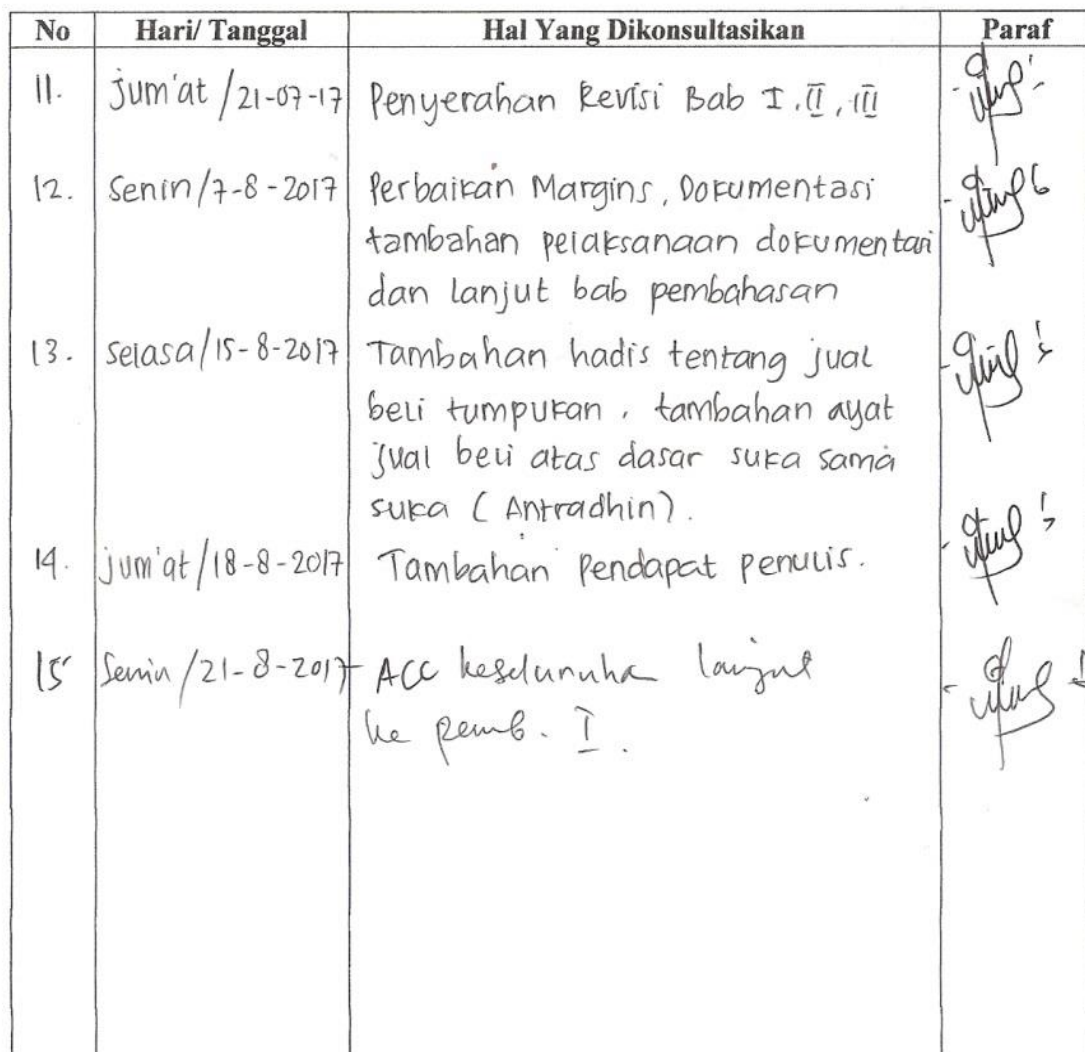 No Hari/ Tanggal Hal Yang Dikonsultasikan Paraf
11. Jum'at /21-07-17 Penyerahan Revisi Bab I, II, III
12. Senin/7-8-2017 Perbaikan Margins, Dokumentasi
tambahan pelaksanaan dokumentasi
dan lanjut bab pembahasan
13. Selasa/15-8-2017 Tambahan hadis tentang jual
beli tumpukan, tambahan ayat
jual beli atas dasar suka sama
suka (Antradhin).
14. Jum'at/18-8-2017 Tambahan Pendapat penulis.
15 Senin/21-8-2017 ACC keseluruha lanjut
ke pemb. I.